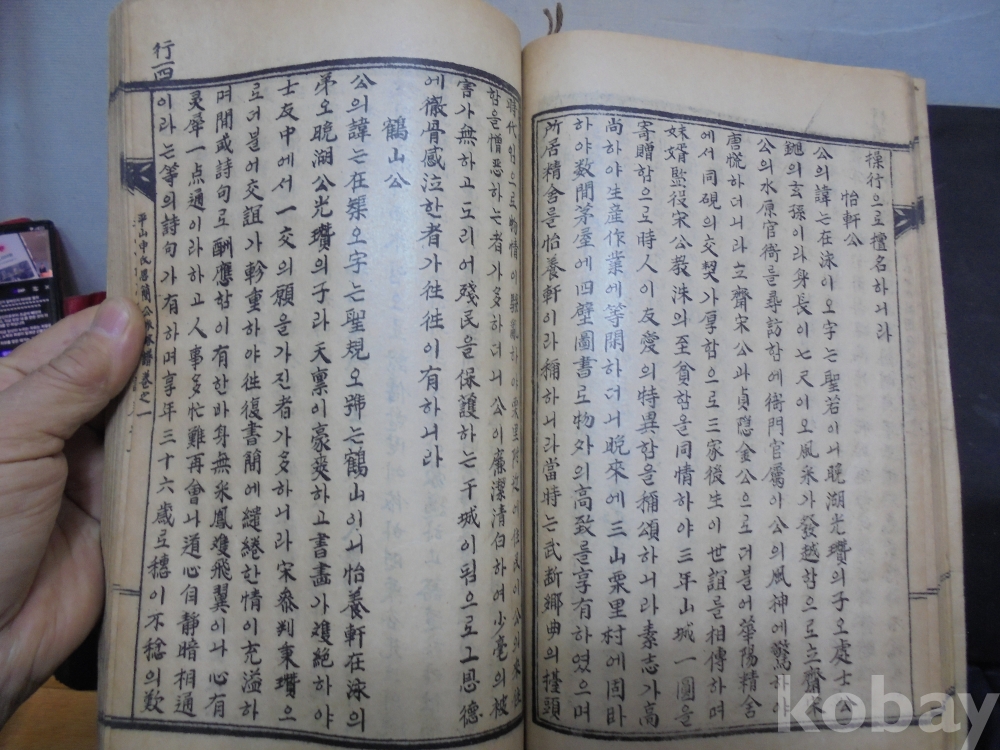 操行으로擅名하니라
怡軒公
公의諱는在洙이오字는聖若이니晚湖光瓚의子오處士公
의玄孫이라身長이七尺이오風采가發越함으로立齋宋
公의水原官衙를尋訪함에衙門官屬이公의風神에驚
唐慌하더니라立齋宋公과貞隱金公으로더불어華陽精舍
에서同硯의交契가厚함으로三家後生이世誼를相傳하며
妹婿監役宋公教洙의至貧함을同情하야三年山城一圖을
寄贈함으로時人이友愛의特異함을稱頌하니라素志가高
尚하야生産作業에等閑하더니晚來에三山栗里村에周卜
하야数間茅屋에四壁圖書로物外의高致를享有하였으며
所居精舍를怡養軒이라稱하니라當時는武断鄉曲의
하는者가多하더니公이廉潔清白하여少毫의被
害가無하고도리어殘民을保護하는干城이됨으로그恩德
에徹骨感泣한者가往往이有하니라
鶴山公
公의諱는在榘오字는聖規오號는鶴山이니怡養軒在洙의
弟오晚湖公光瓚의子라天禀이豪爽하고書畵가雙絶하야
士友中에서一交의願을가진者가多하니라宋參判秉瓚으
로더불어交誼가軫重하야往復書簡에繾綣한情이充溢하
며間或詩句로酬應함이有한바身無釆鳳雙飛翼이나心有
灵犀一点通이라하고人事多忙難再會나道心自靜暗相通
이라는等의詩句가有하며享年三十六歲로穗이不稔의歎
平山申氏
公派派譜 卷之一
行四
kobay